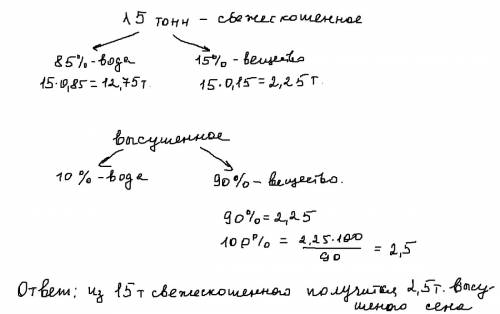 15 тонн – свежескошенное
85% – вода 15% – вещество
15·0,85 = 12,75 т. 15·0,15 = 2,25 т.
высушенное
10% – вода 90% – вещество.
90% = 2,25
100% = 2,25·100 / 90 = 2,5
Ответ: из 15 т свежескошенного получится 2,5 т. высу-
шеного сена